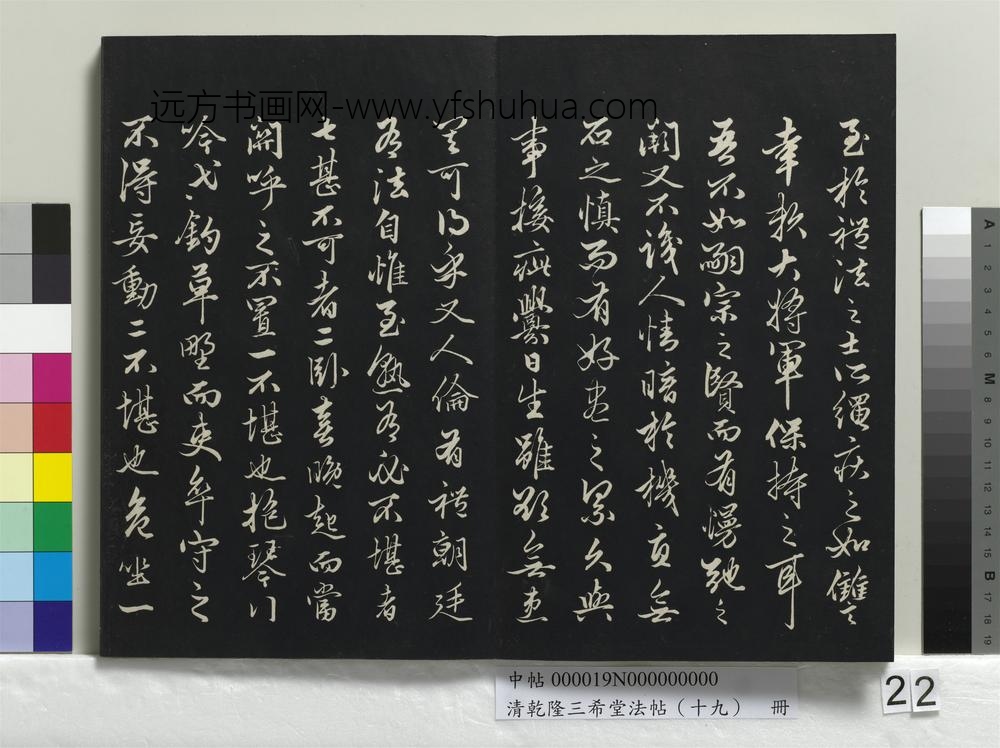 至於禮法之士所繩疾之如讎
幸賴大將軍保持之耳
吾不如嗣宗之賢而有慢弛之
闕又不識人情暗於機宜無
石之慎而有好盡之累久與
事接疵釁日生雖欲無患
其可得乎又人倫有禮朝廷
有法自惟至熟有必不堪者
七甚不可者二卧喜晚起而當
關呼之不置一不堪也抱琴行
吟弋釣草野而吏卒守之
不得妄動二不堪也危坐一
远方书画网-www.yfshuhua.com
中帖 000019N000000000
清乾隆三希堂法帖（十九） 冊
22
A 1 2 3 4 5 6 M 8 9 10 11 12 13 14 15 B 17 18 19